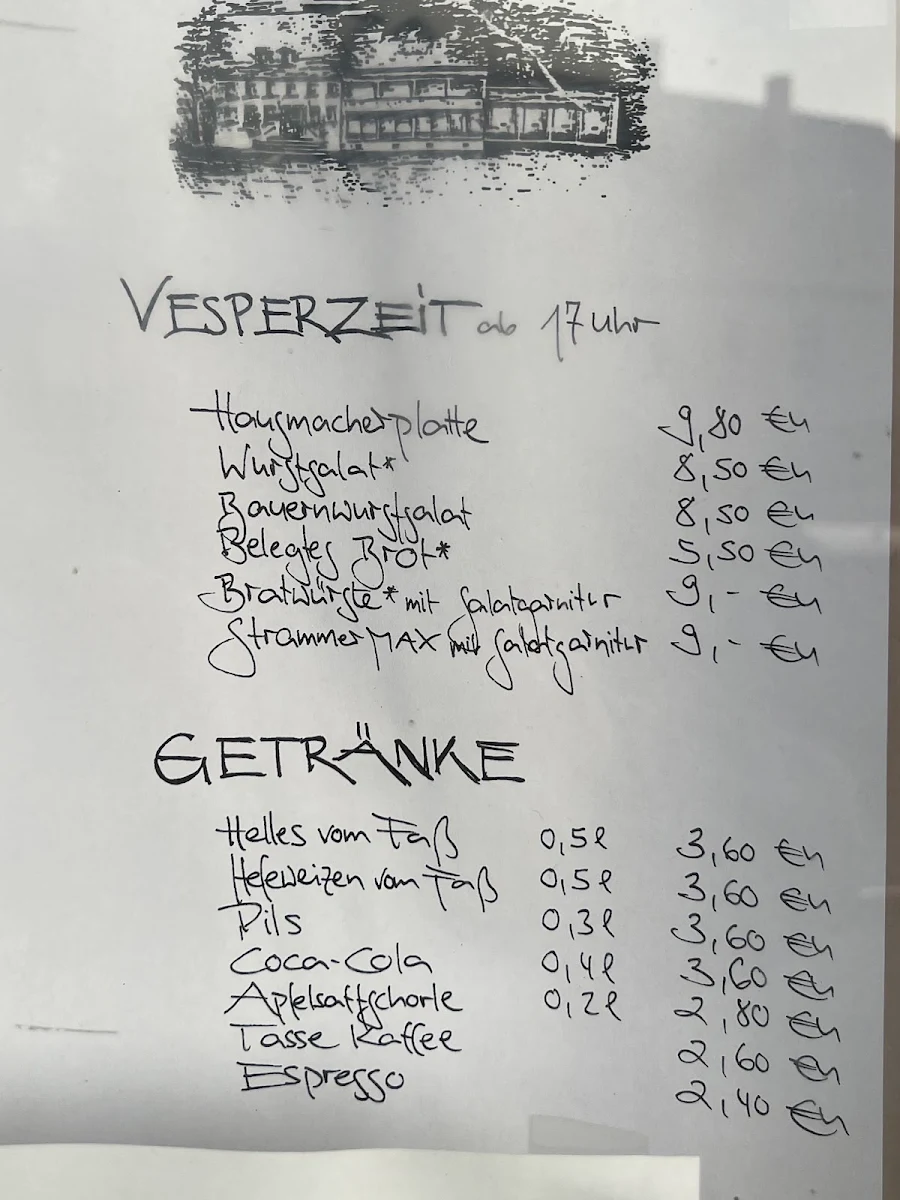 VESPERZEIT ab 17 Uhr
Hausmacherplatte 9,80 €u
Wurstsalat* 8,50 €u
Bauernwurstsalat 8,50 €u
Belegtes Brot* 5,50 €u
Bratwürste* mit Salatgarnitur 9,- €u
Strammer MAX mit Salatgarnitur 9,- €u
GETRÄNKE
Helles vom Faß 0,5l 3,60 €u
Hefeweizen vom Faß 0,5l 3,60 €u
Pils 0,3l 3,60 €u
Coca-Cola 0,4l 3,60 €u
Apfelsaftschorle 0,2l 2,80 €u
Tasse Kaffee 2,60 €u
Espresso 2,40 €u